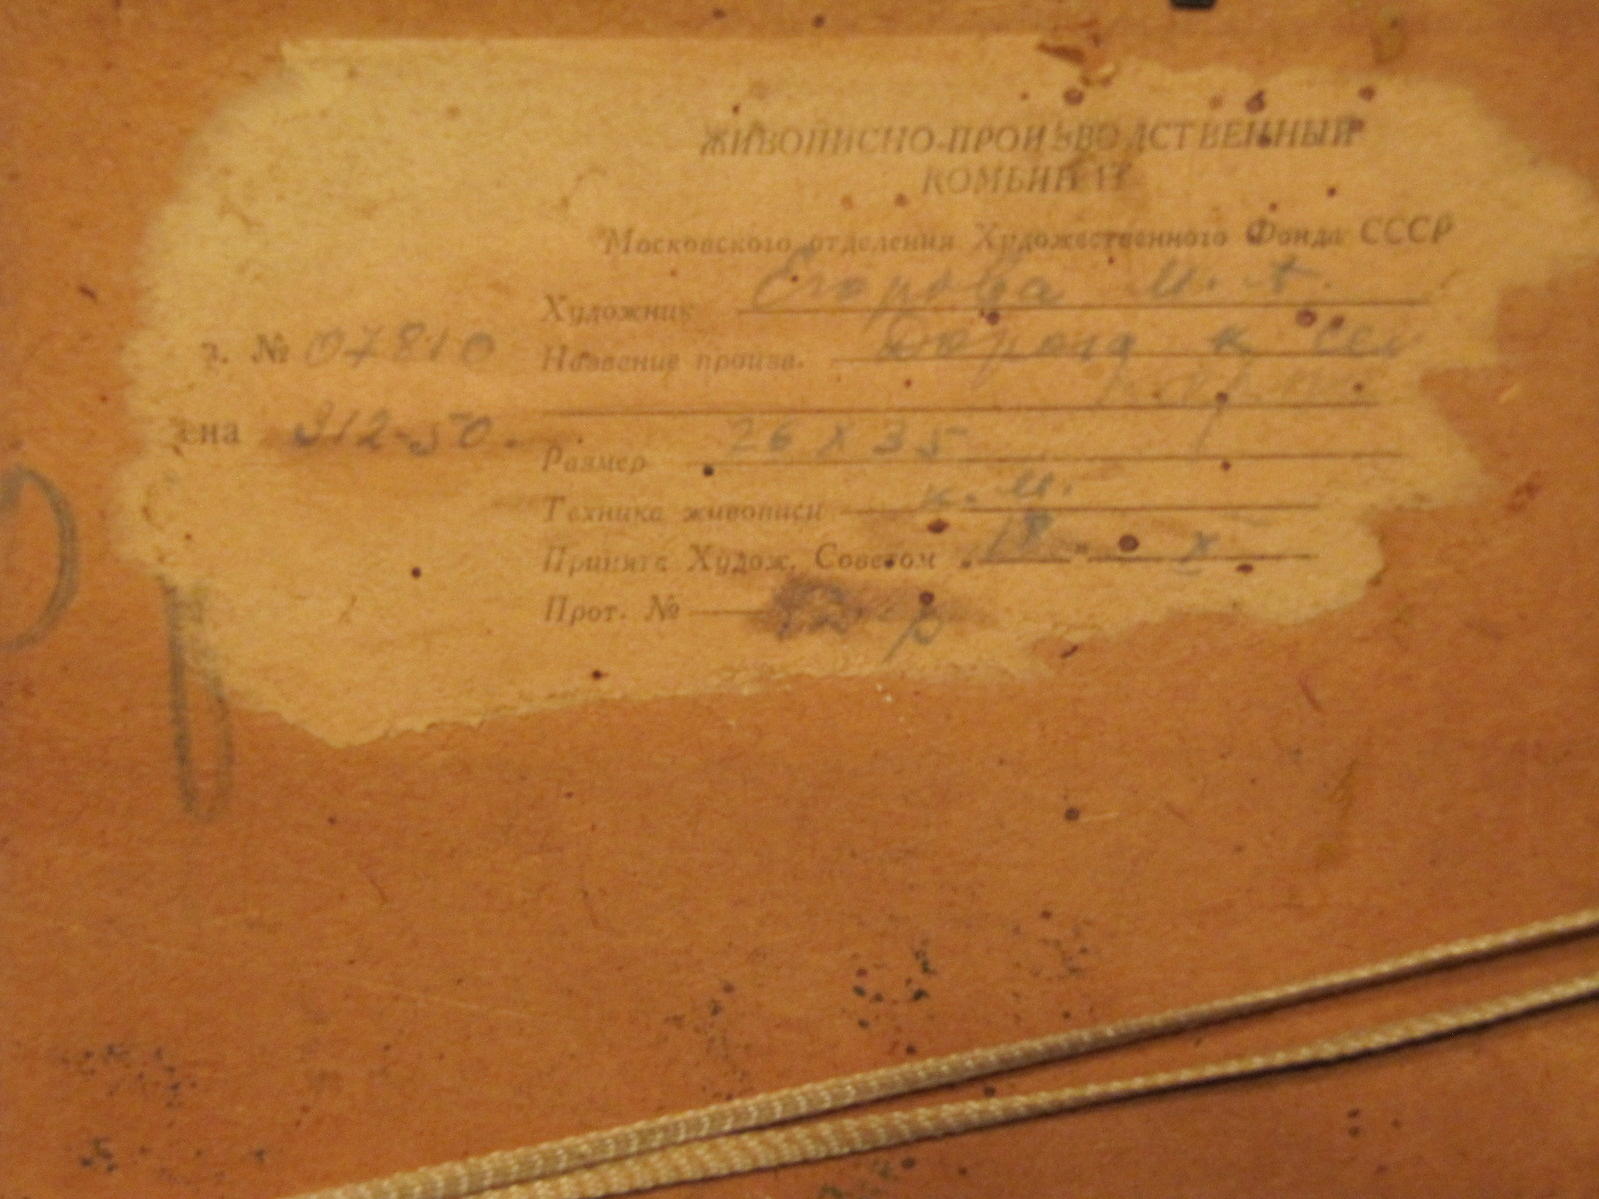 ЖИВОПИСНО-ПРОИЗВОДСТВЕННЫЙ
КОМБИНАТ
Московского отделения Художественного Фонда СССР
Художник Егорова М. А.
з. № 07810
Название произв. Дорога к
ена 312-50.
Размер 26 х 35
Техника живописи к. м.
Принята Худож. Советом 18 " х
Прот. №